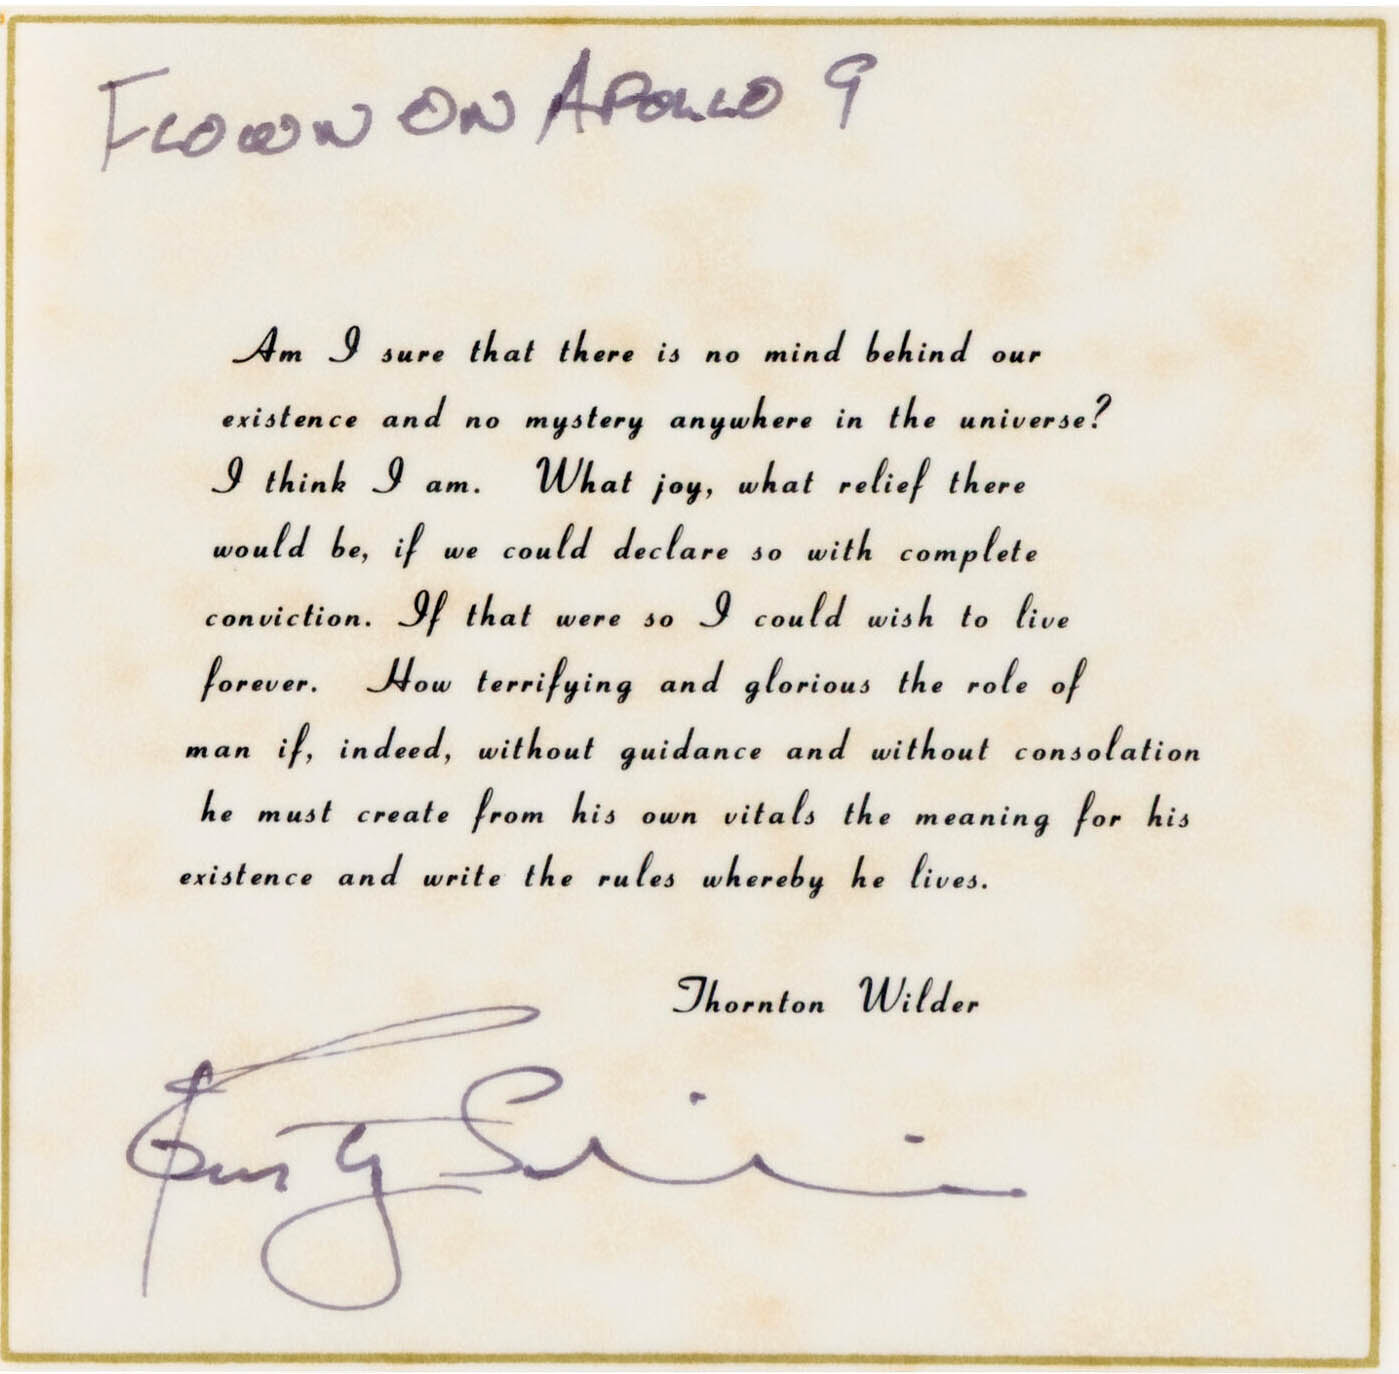 FLOWN ON APOLLO 9
Am I sure that there is no mind behind our
existence and no mystery anywhere in the universe?
I think I am. What joy, what relief there
would be, if we could declare so with complete
conviction. If that were so I could wish to live
forever. How terrifying and glorious the role of
man if, indeed, without guidance and without consolation
he must create from his own vitals the meaning for his
existence and write the rules whereby he lives.
Thornton Wilder
Rusty